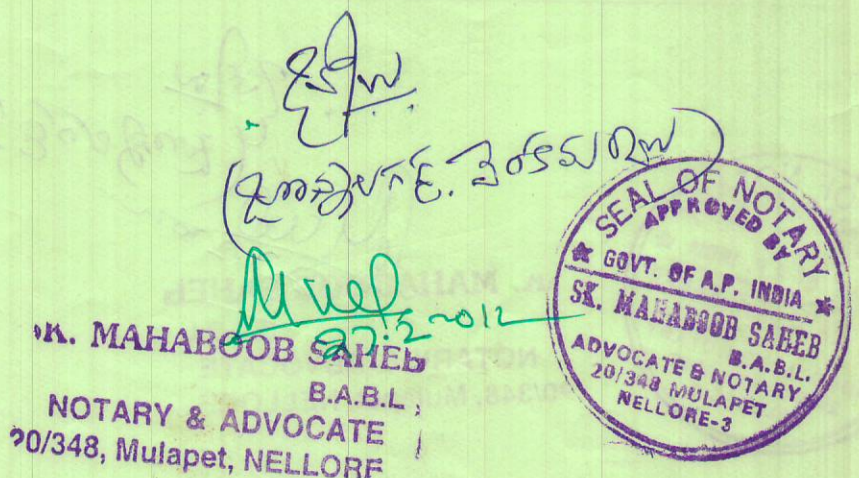 27.2-012
SK. MAHABOOB SAHEB
B.A.B.L,
NOTARY & ADVOCATE
20/348, Mulapet, NELLORE
SEAL OF NOTARY
APPROVED BY
★ GOVT. OF A.P. INDIA ★
SK. MAHABOOB SAHEB
B.A.B.L.
ADVOCATE & NOTARY
20/348 MULAPET
NELLORE-3